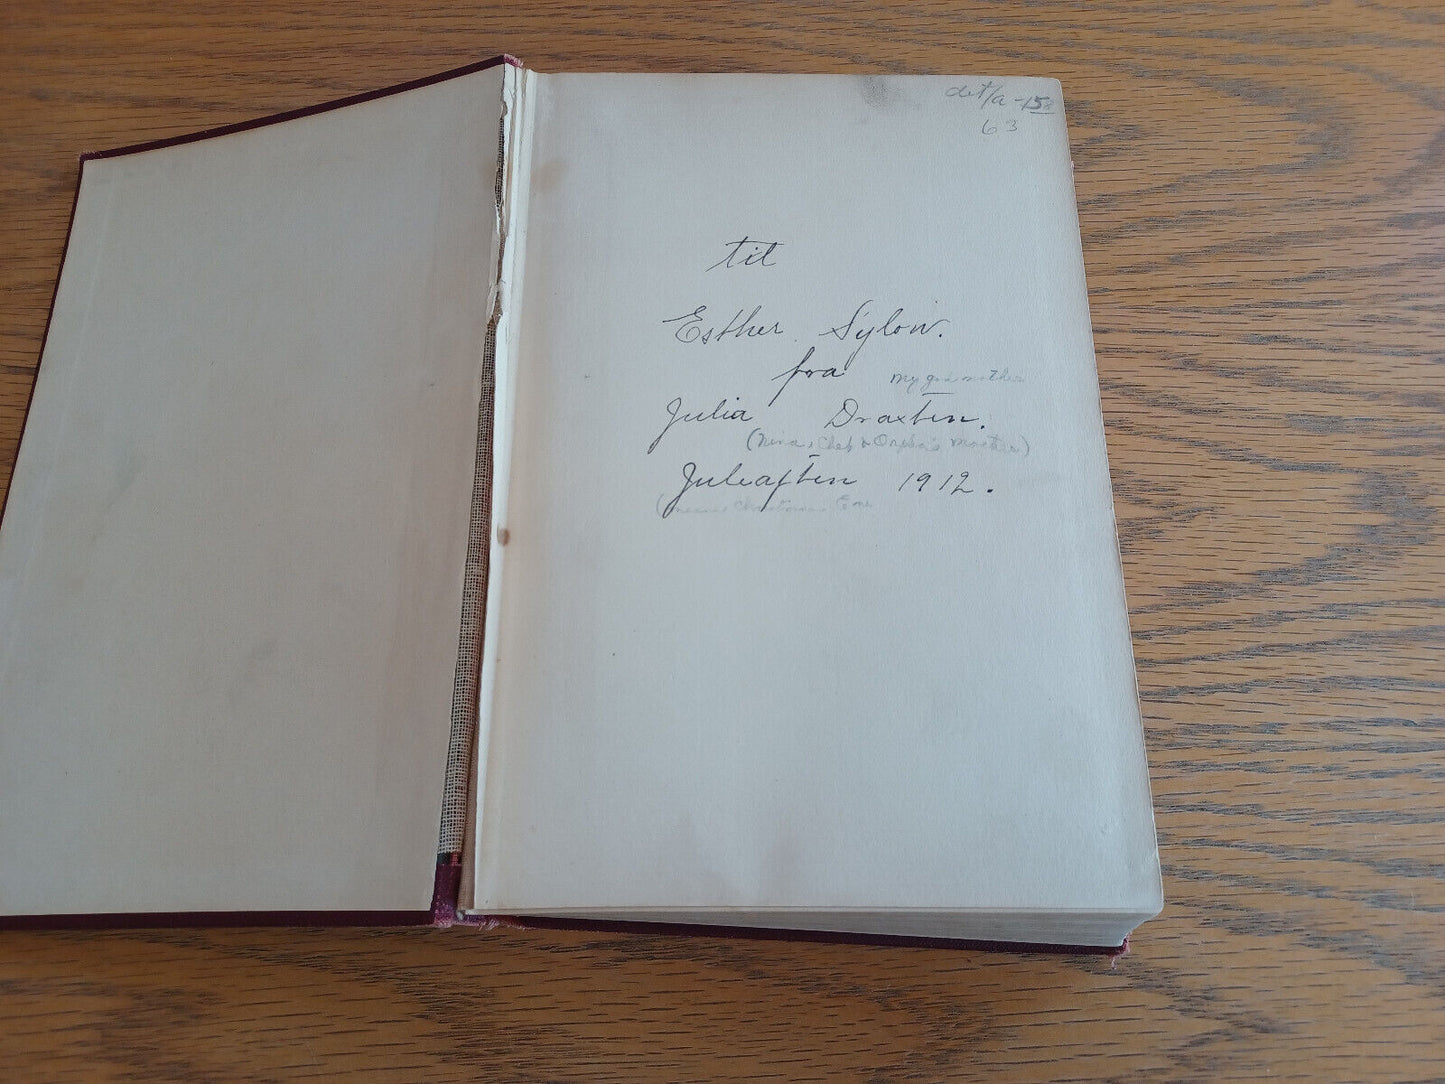 63
til
Esther Sylow.
fra my godmother
Julia Draxten.
(Nina, Chet & Orpha's Mother)
Juleaften 1912.
(means Christmas Eve